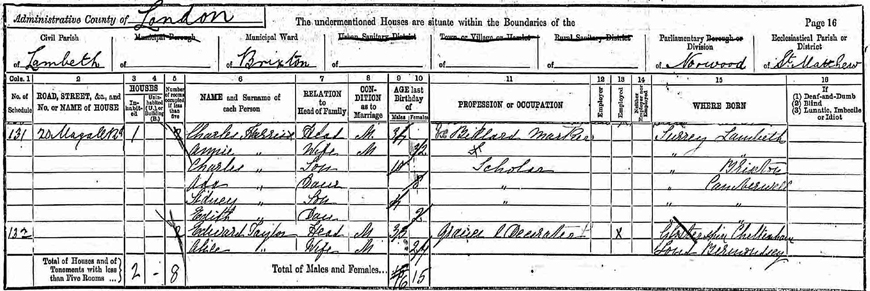 Administrative County of London The undermentioned Houses are situate within the Boundaries of the Page 16
Civil Parish Municipal Borough Municipal Ward Urban Sanitary District Town or Village or Hamlet Rural Sanitary District Parliamentary Borough or Division Ecclesiastical Parish or District
of Lambeth of of Brixton of of of of Norwood of St. Matthew
Cols. 1 2 3 4 5 6 7 8 9 10 11 12 13 14 15 16
No. of Schedule ROAD, STREET, &c., and No. or NAME of HOUSE HOUSES Inhabited Uninhabited (U.) or Building (B.) Number of rooms occupied if less than five NAME and Surname of each Person RELATION to Head of Family CONDITION as to Marriage AGE last Birthday of Males Females PROFESSION or OCCUPATION Employer Employed Neither Employer nor Employed WHERE BORN If (1) Deaf-and-Dumb (2) Blind (3) Lunatic, Imbecile or Idiot
131 1 Charles Head M Billard Marker Surrey Lambeth
Annie " Wife M 32 " "
Charles " Son 10 Scholar " Brixton
Ada " Daur 8 " " Camberwell
Sidney " Son 4 " "
Edith " Daur 2 "
132 2 Edward Taylor Head M Grainer & Decorator x Cheltenham
Alice " Wife M 24 Lond Bermondsey
Total of Houses and of Tenements with less than Five Rooms ... 2 - 8 Total of Males and Females... 16 15